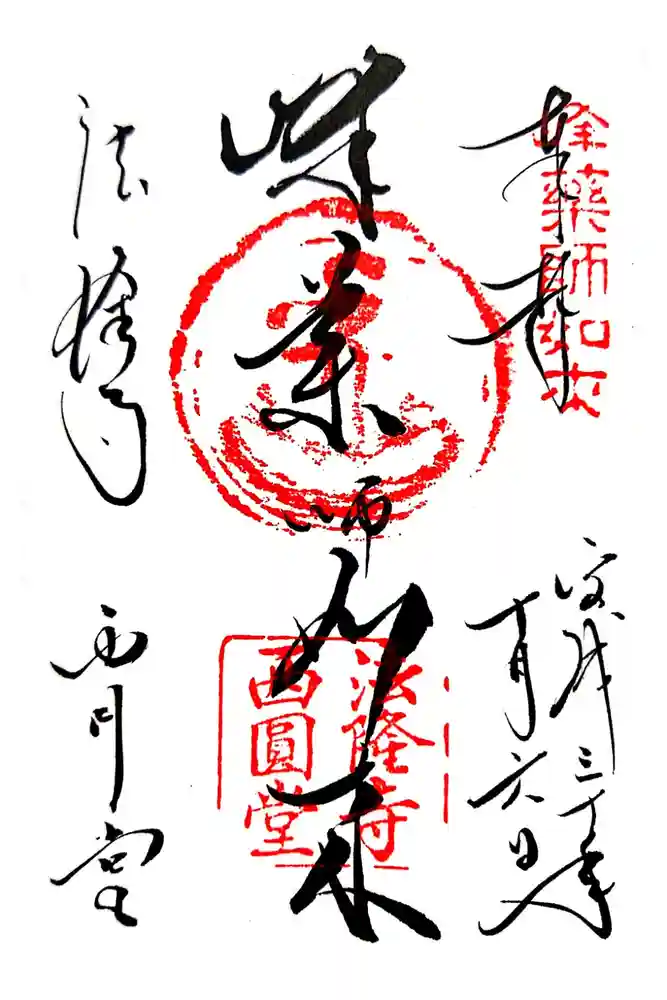 奉拝
峰藥師如来
平成三十年
十月六日
峰薬師如来
法隆寺
西圓堂
法隆寺
西円堂